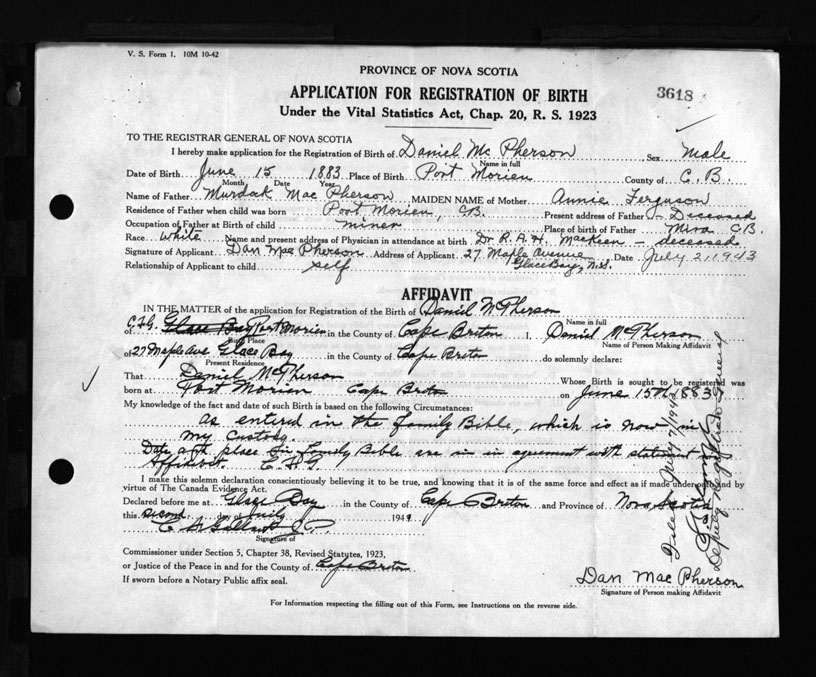 V. S. Form 1. 10M 10-42
PROVINCE OF NOVA SCOTIA
APPLICATION FOR REGISTRATION OF BIRTH
3618
Under the Vital Statistics Act, Chap. 20, R. S. 1923
TO THE REGISTRAR GENERAL OF NOVA SCOTIA
I hereby make application for the Registration of Birth of Daniel Mc Pherson Sex Male
Name in full
Date of Birth June 15 1883 Place of Birth Port Morien County of C. B.
Month Date Year
Name of Father Murdak Mac Pherson MAIDEN NAME of Mother Annie Ferguson
Residence of Father when child was born Port Morien, CB. Present address of Father Deceased
Occupation of Father at Birth of child miner Place of birth of Father Mira CB.
Race White Name and present address of Physician in attendance at birth Dr. R. A. H. MacKeen - deceased
Signature of Applicant Dan Mac Pherson Address of Applicant 27 Maple Avenue Date July 2, 1943
Relationship of Applicant to child self Glace Bay, N.S.
AFFIDAVIT
IN THE MATTER of the application for Registration of the Birth of Daniel McPherson
Name in full
of Glace Bay Port Morien in the County of Cape Breton I, Daniel McPherson
Birth Place Name of Person Making Affidavit
of 27 Maple Ave Glace Bay in the County of Cape Breton do solemnly declare:
Present Residence
That Daniel McPherson Whose Birth is sought to be registered was
born at Port Morien Cape Breton on June 15th 1883
My knowledge of the fact and date of such Birth is based on the following Circumstances:
as entered in the family Bible, which is now in
my custody.
Date and place in family Bible are in agreement with statement in
Affidavit.
I make this solemn declaration conscientiously believing it to be true, and knowing that it is of the same force and effect as if made under oath and by
virtue of The Canada Evidence Act.
Declared before me at Glace Bay in the County of Cape Breton and Province of Nova Scotia
this second day of July 194
Signature of
Commissioner under Section 5, Chapter 38, Revised Statutes, 1923,
or Justice of the Peace in and for the County of Cape Breton
If sworn before a Notary Public affix seal.
Dan Mac Pherson
Signature of Person making Affidavit
For Information respecting the filling out of this Form, see Instructions on the reverse side.
Deputy Registrar General